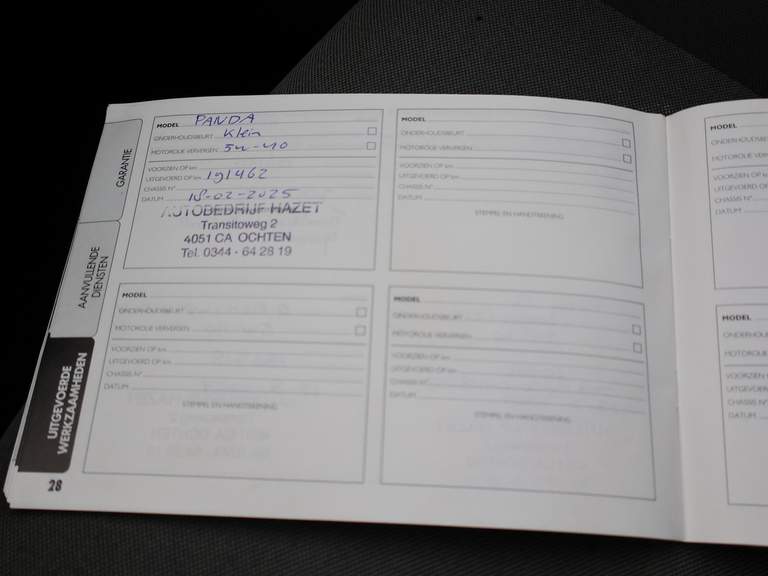 GARANTIE
AANVULLENDE
DIENSTEN
UITGEVOERDE
WERKZAAMHEDEN
28
MODEL PANDA
ONDERHOUDSBEURT Klein
MOTOROLIE VERVERSEN 5w-40
VOORZIEN OP km
UITGEVOERD OP km 191462
CHASSIS N°
DATUM 18-02-2025
AUTOBEDRIJF HAZET
Transitoweg 2
4051 CA OCHTEN
Tel. 0344 - 64 28 19
MODEL
ONDERHOUDSBEURT
MOTOROLIE VERVERSEN
VOORZIEN OP km
UITGEVOERD OP km
CHASSIS N°
DATUM
STEMPEL EN HANDTEKENING
MODEL
ONDERHOUDSBEURT
MOTOROLIE VERVERSEN
VOORZIEN OP km
UITGEVOERD OP km
CHASSIS N°
DATUM
STEMPEL EN HANDTEKENING
MODEL
ONDERHOUDSBEURT
MOTOROLIE VERVERSEN
VOORZIEN OP km
UITGEVOERD OP km
CHASSIS N°
DATUM
STEMPEL EN HANDTEKENING
MODEL
CHASSIS N°
DATUM
MODEL
CHASSIS N°
DATUM